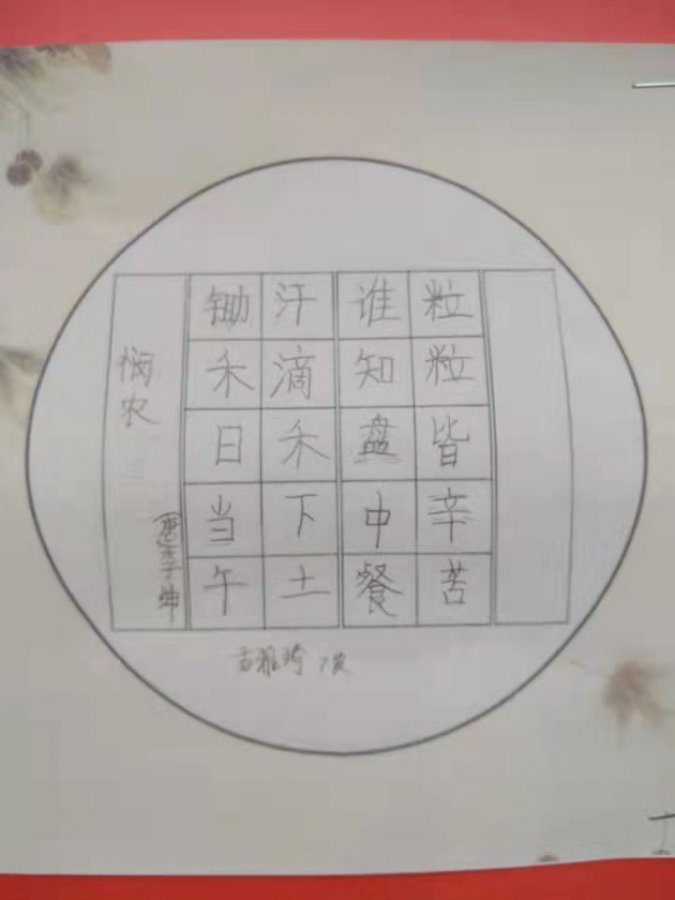 悯农
(唐)李绅
锄禾日当午
汗滴禾下土
谁知盘中餐
粒粒皆辛苦
7岁